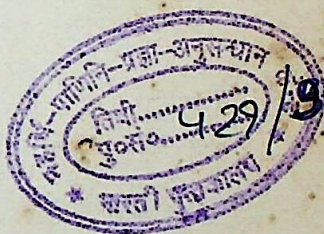 महर्षि-पाणिनि-प्रज्ञा-अनुसन्धान
तिथी..............
पु०सं०.... 429/9
* भारती पुस्तकालय *